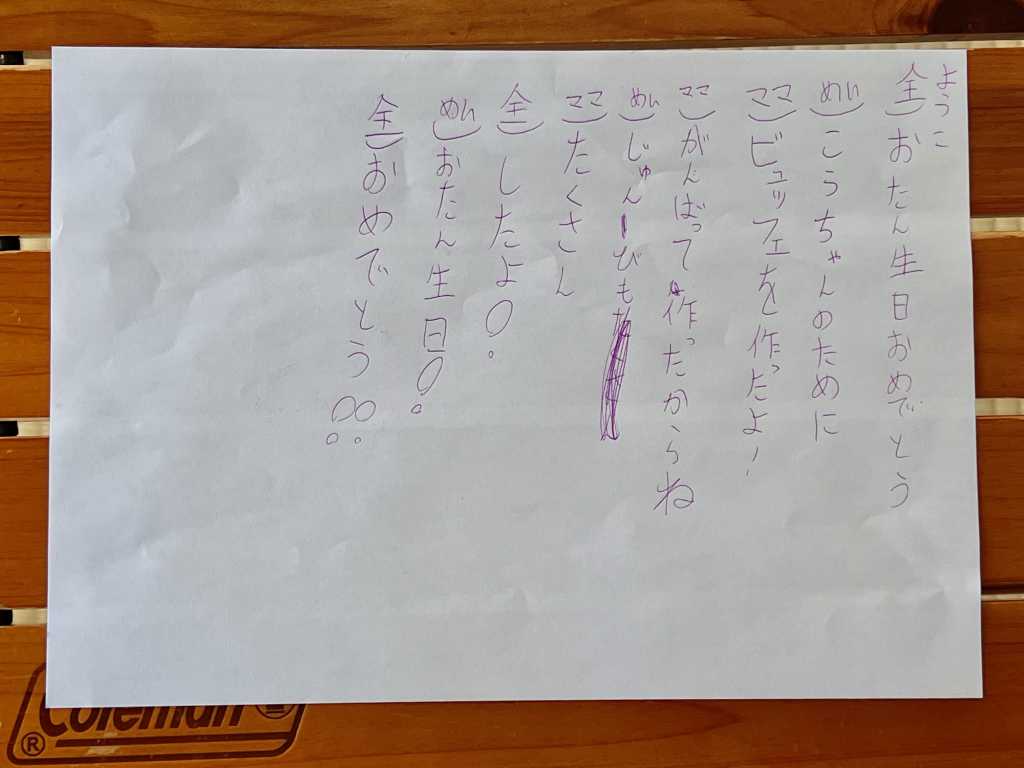 ようこ
全）おたん生日おめでとう
めい）こうちゃんのために
ママ）ビュッフェを作っだよ！
ママ）がんばって作ったからね
めい）じゅんびも
ママ）たくさん
全）したよ！
めい）おたん生日！
全）おめでとう！！
Coleman®